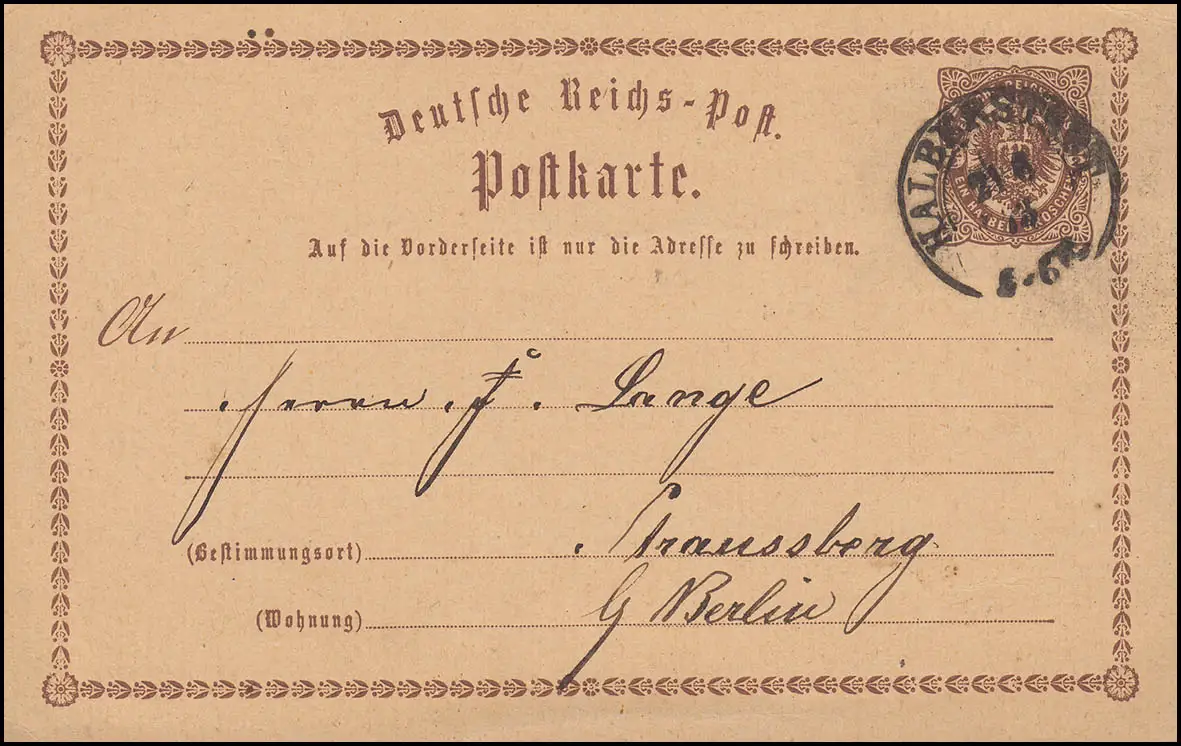 Deutsche Reichs-Post.
Postkarte.
Auf die Vorderseite ist nur die Adresse zu schreiben.
HALBERSTADT
21 8
75
5-6N
An
Herrn F. Lange
(Bestimmungsort) Straussberg
(Wohnung) b/ Berlin